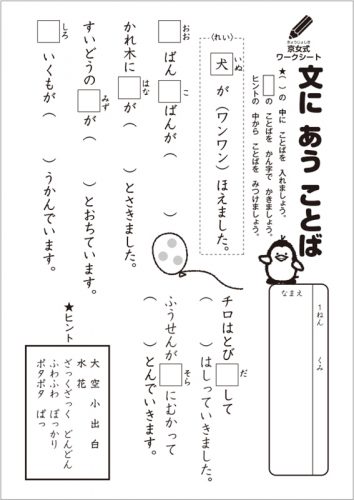 きょうじょしき
京女式
ワークシート
文に あう ことば
★（　）の 中に ことばを 入れましょう。
□の ことばを かん字で かきましょう。
ヒントの 中から ことばを みつけましょう。
1ねん　くみ
なまえ
〈れい〉
犬（いぬ）が（ワンワン）ほえました。
□（おお）ばん□（こ）ばんが（　　）
かれ木に□（はな）が（　　）とさきました。
すいどうの□（みず）が（　　）とおちています。
□（しろ）いくもが（　　）うかんでいます。
チロはとび□（だ）して
（　　）はしっていきました。
ふうせんが□（そら）にむかって
（　　）とんでいきます。
★ヒント
大 空 小 出 白
水 花
ざっくざっく どんどん
ふわふわ ぽっかり
ポタポタ ぱっ